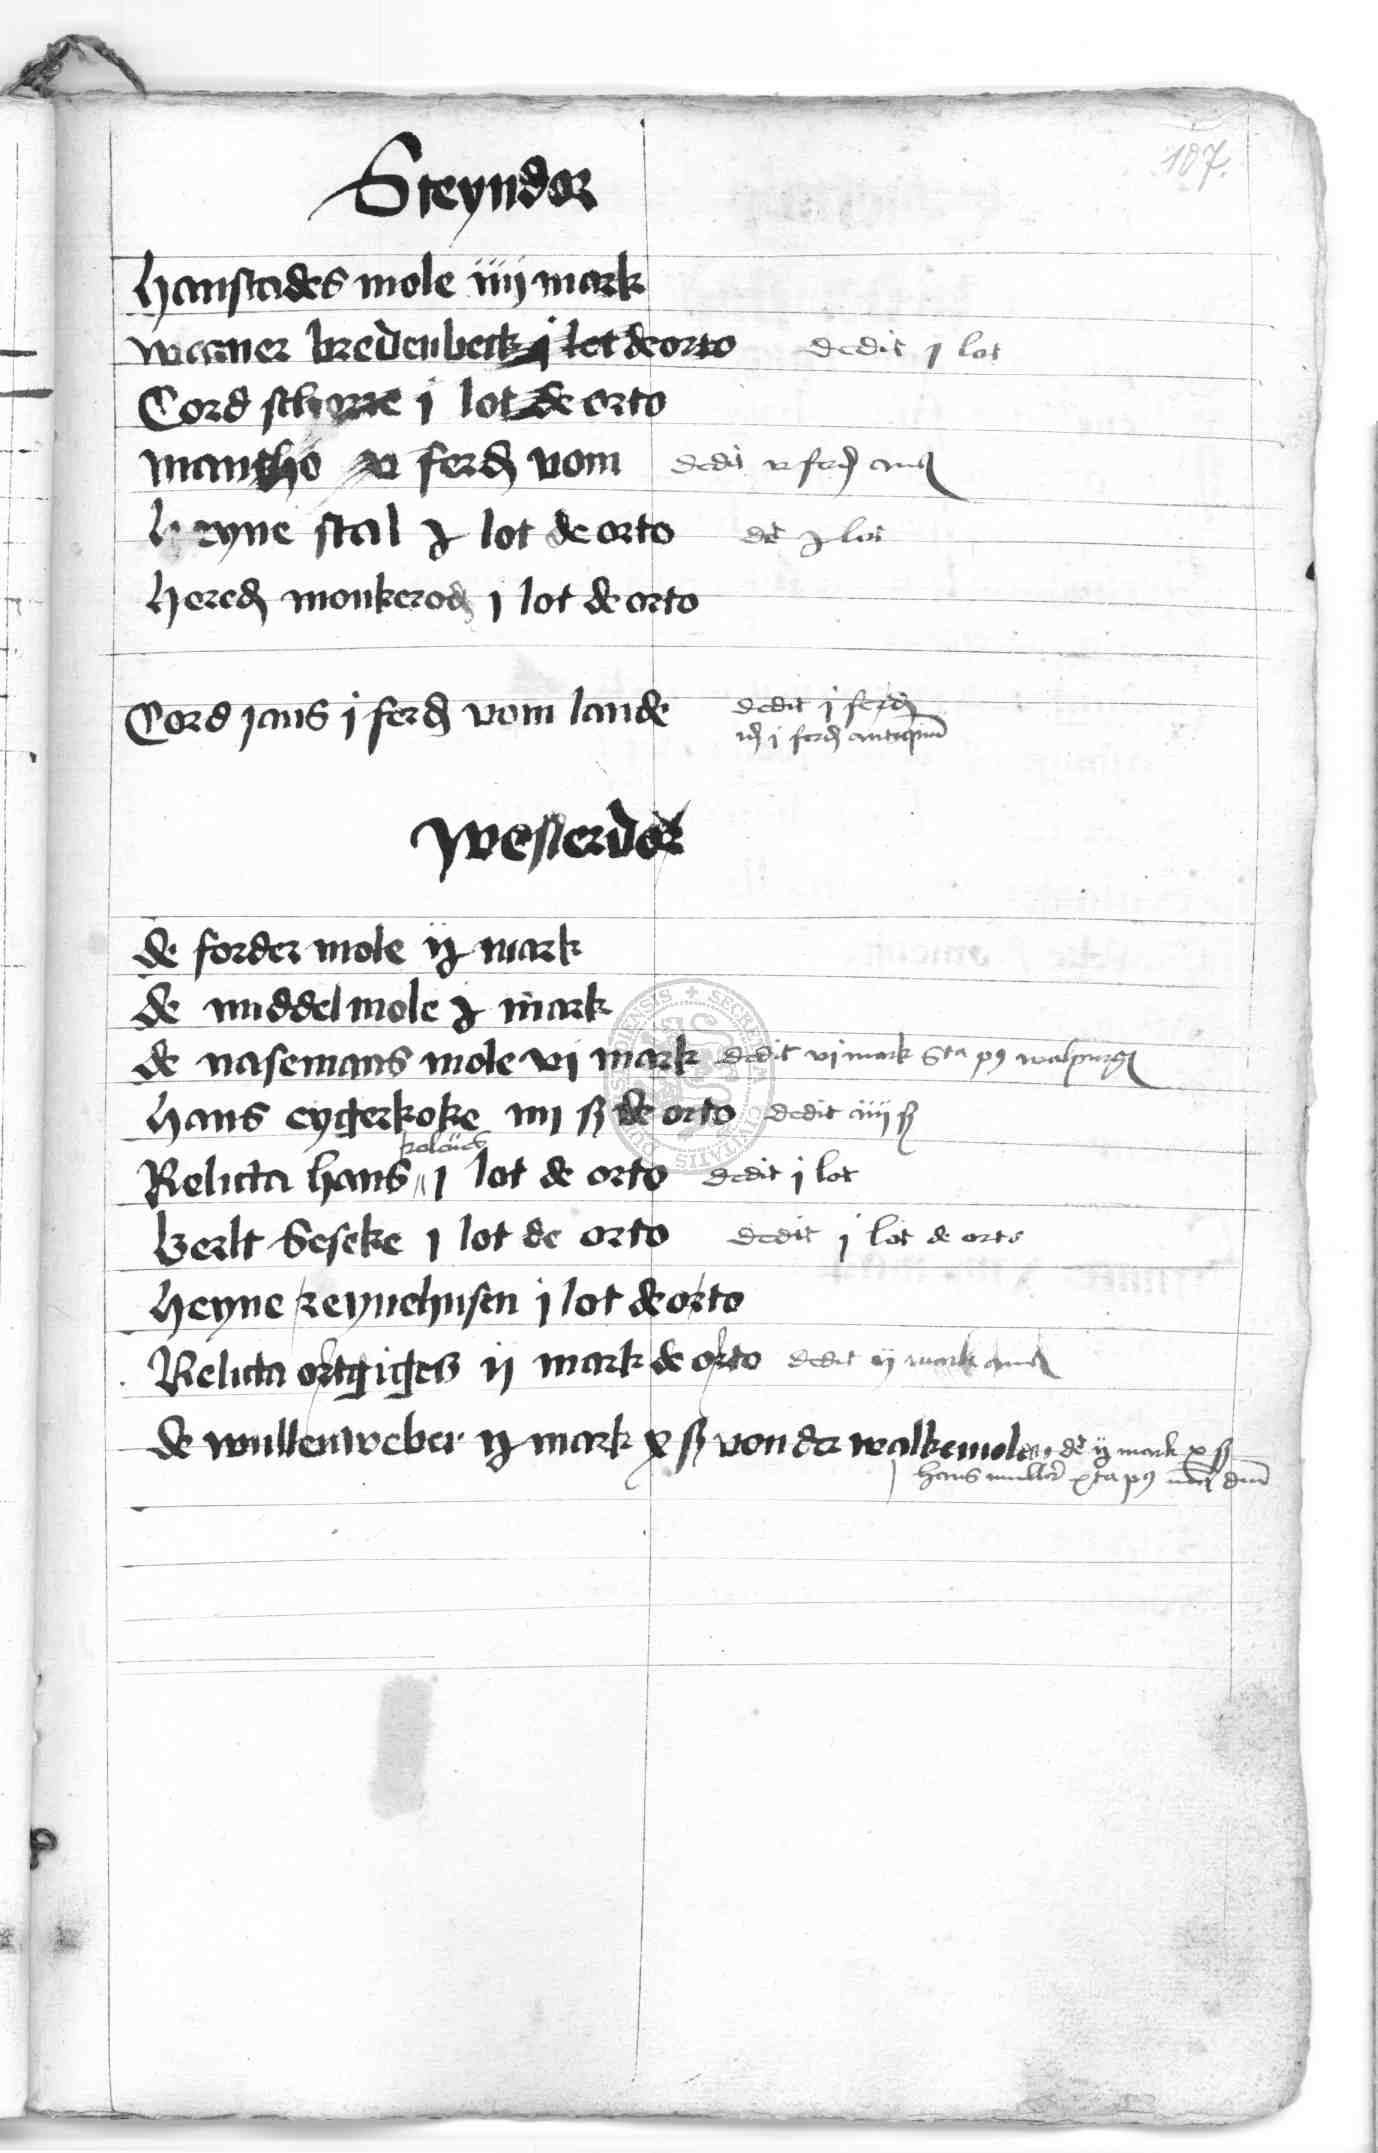 107.
Steyndor
Hanstades mole iiij mark
wegener bredenbeck j lot de orto dedit j lot
Cord schone j lot de orto
mangho v ferd vom dedit v ferd
heyne stal j lot de orto dt j lot
hered monkerod j lot de orto
Cord jans j ferd vom lande dedit j ferd
j ferd antiquum
Westerdor
de forder mole ij mark
de middel mole j mark
de nasemans mole vj mark dedit vj mark 6ta p9 walpurg
hans eygerkoke iiij ß de orto dedit iiij ß
Relicta hans j lot de orto dedit j lot
Berlt Geseke j lot de orto dedit j lot de orto
heyne reynehusen j lot de orto
Relicta ortgiges ij mark de orto dedit ij mark
de wullenweber ij mark x ß von der walkemolen dt ij mark x ß
hans muller